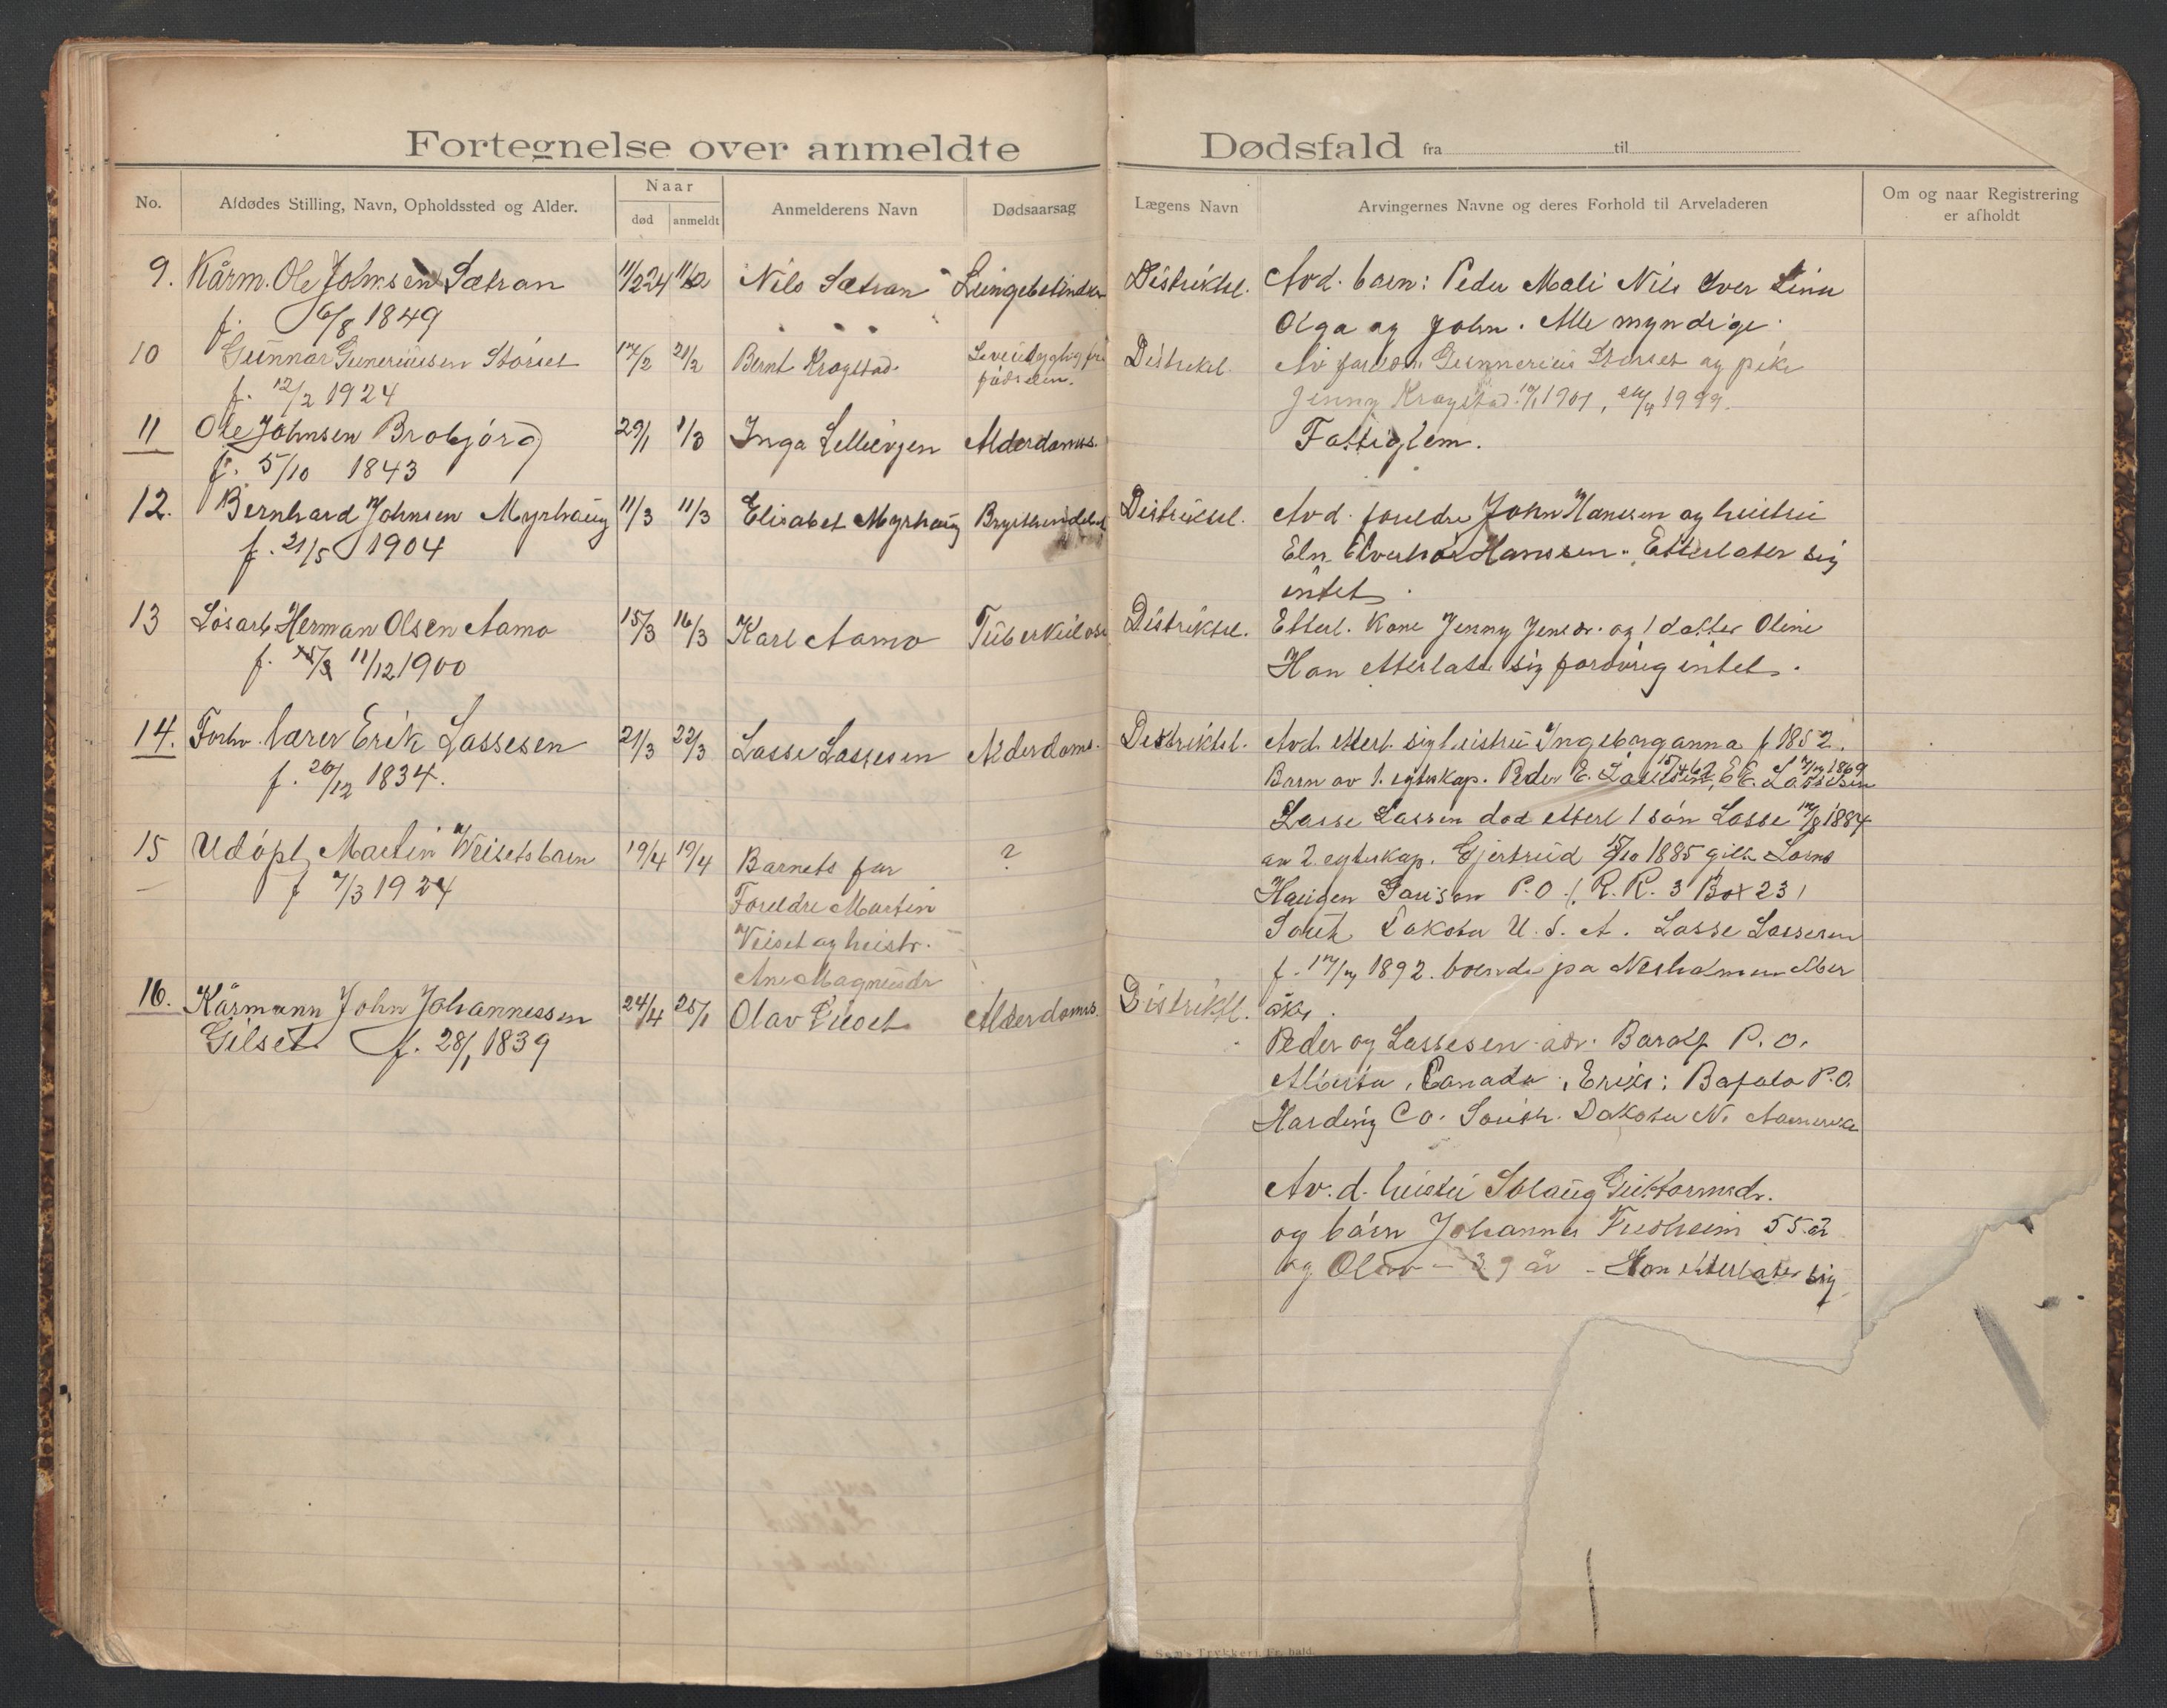 Fortegnelse over anmeldte
No.
Afdødes Stilling, Navn, Opholdssted og Alder.
Naar
død
anmeldt
Anmelderens Navn
Dødsaarsag
9. Kårm. Ole Johnsen Sætran 11/2 24 11/2 Nils Sætran
f. 6/8 1849
10 Gunnar Gunneriusen Storset 17/2 21/2 Bernt Kragstad
f. 12/2 1924
11 Ole Johnsen Brobjörg 29/1 1/3 Inga Alderdoms.
f. 5/10 1843
12. Bernhard Johnsen Myrhaug 11/3 11/3 Elisabet Myrhaug
f. 21/5 1904
13 Løsarb Herman Olsen Aamo 15/3 16/3 Karl Aamo Tuberkulose
f. 11/12 1900
14. Forhv. lærer Erik Lassesen 21/3 22/3 Lasse Lassesen Alderdoms.
f. 26/12 1834.
15 Udöpt Martin Veisetsbarn 19/4 19/4 Barnets far ?
f 7/3 1924
Foreldre Martin
Veiset og hustr.
Ane Magnusdr
16. Kårmann John Johannessen 24/4 25/1 Olav Alderdoms.
Gilset f. 28/1 1839
Dødsfald fra til
Lægens Navn
Arvingernes Navne og deres Forhold til Arveladeren
Om og naar Registrering
er afholdt
Distriktsl. Avd. barn: Peder Mali Nils Iver
Olga og John. Alle myndige.
Distriktsl. Av foreldre Gunnerius Storset og pike
Jenny Kragstad
Fattiglem.
Distriktsl. Avd. foreldre John Hansen og hustru
Hanssen. Etterlater sig
intet.
Distriktsl. Etterl. Kone Jenny Jensdr. og 1 datter Oline
Han etterlater sig forövrig intet.
Distriktsl. Avd. etterl. sig hustru Ingeborganna f 1852.
Barn av 1. egteskap. Peder E. E. Lassesen 1869
Lasse Lassen död etterl 1 sön Lasse 17/8 1884
av 2 egteskap. Gjertrud 1885 gift
Haugen P.O. R. R. 3 Box 231
South Dakota U. S. A. Lasse Lassesen
1892. boende pa Nesholmen
Distriktsl.
Peder og Lassesen adr. P. O.
Alberta, Canada, Eriks: Bafalo P.O.
Harding Co. South. Dakota N. Amerika
Av. d. hustru Solaug Guttormsdr.
og barn Johannes 55 år
og Olav - 39 år - Han etterlater sig
Trykkeri, Fr.hald.